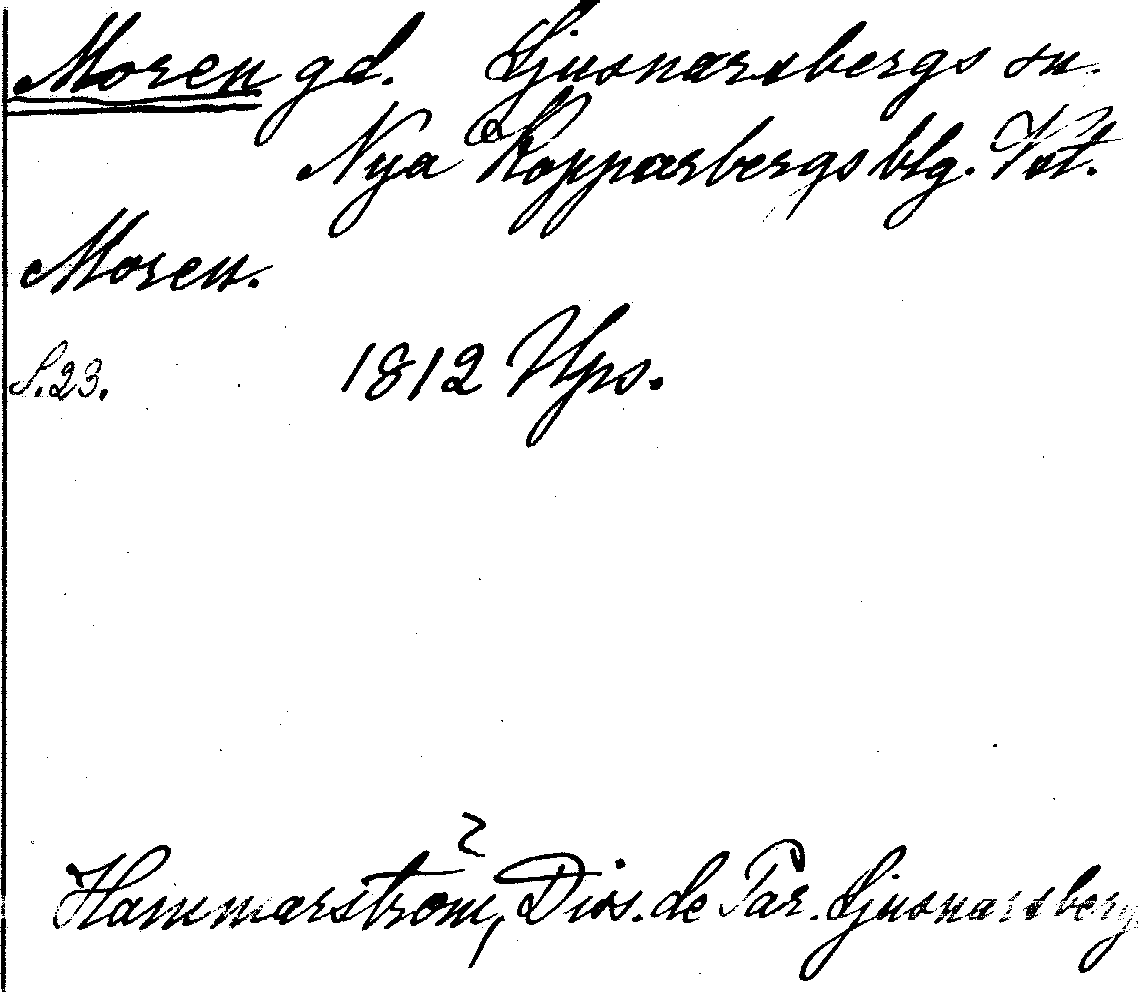 Moren gd. Ljusnarsbergs sn.
Nya Kopparbergs blg. Vst.
Moren.
S. 23. 1812 Ups.
Hammarström, Diss. de Par. Ljusnarsberg